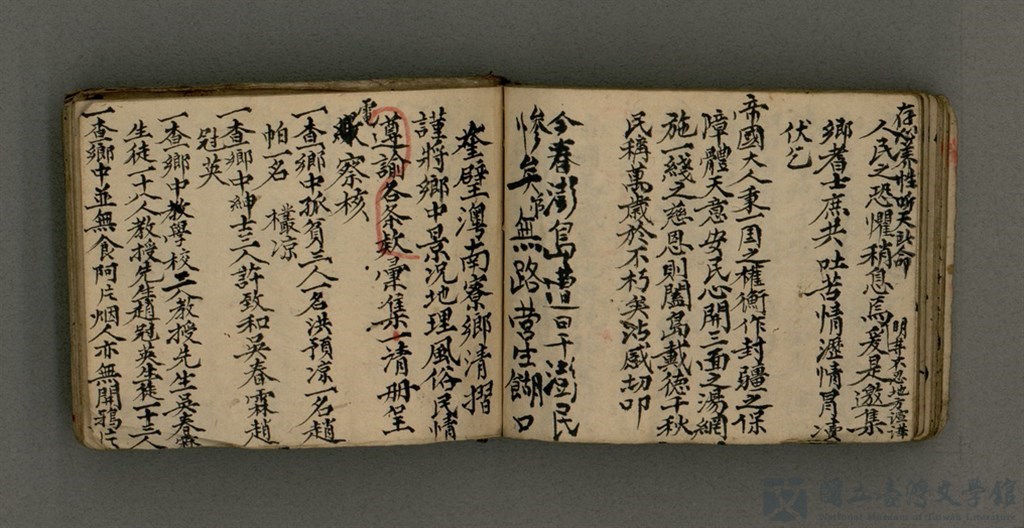 存心養性听天聽命
人民之恐懼稍息焉爰是邀集
鄉耆士庶共吐苦情瀝情冒瀆
伏乞
帝國大人秉一国之權衡作封疆之保
障體天意安民心開三面之湯網
施一綫之慈恩則闔島戴德千秋
民稱萬歲於不朽矣沾感切叩
今春澎島遭日干澎民
慘矣无路营生餬口
奎壁澳南寮鄉清摺
謹將鄉中景況地理風俗民情
遵諭各条款彙集一清册呈
電
察核
一查鄉中孤貧三人一名洪預凉一名趙
帕一名 凉
一查鄉中紳士三人許致和吳春霖趙
冠英
一查鄉中教學校二教授先生吳春霖
生徒一十八人教授先生趙冠英生徒一十三人
一查鄉中並無食阿片烟人亦無開鴉片
國立臺灣文學館
National Museum of Taiwan Literature